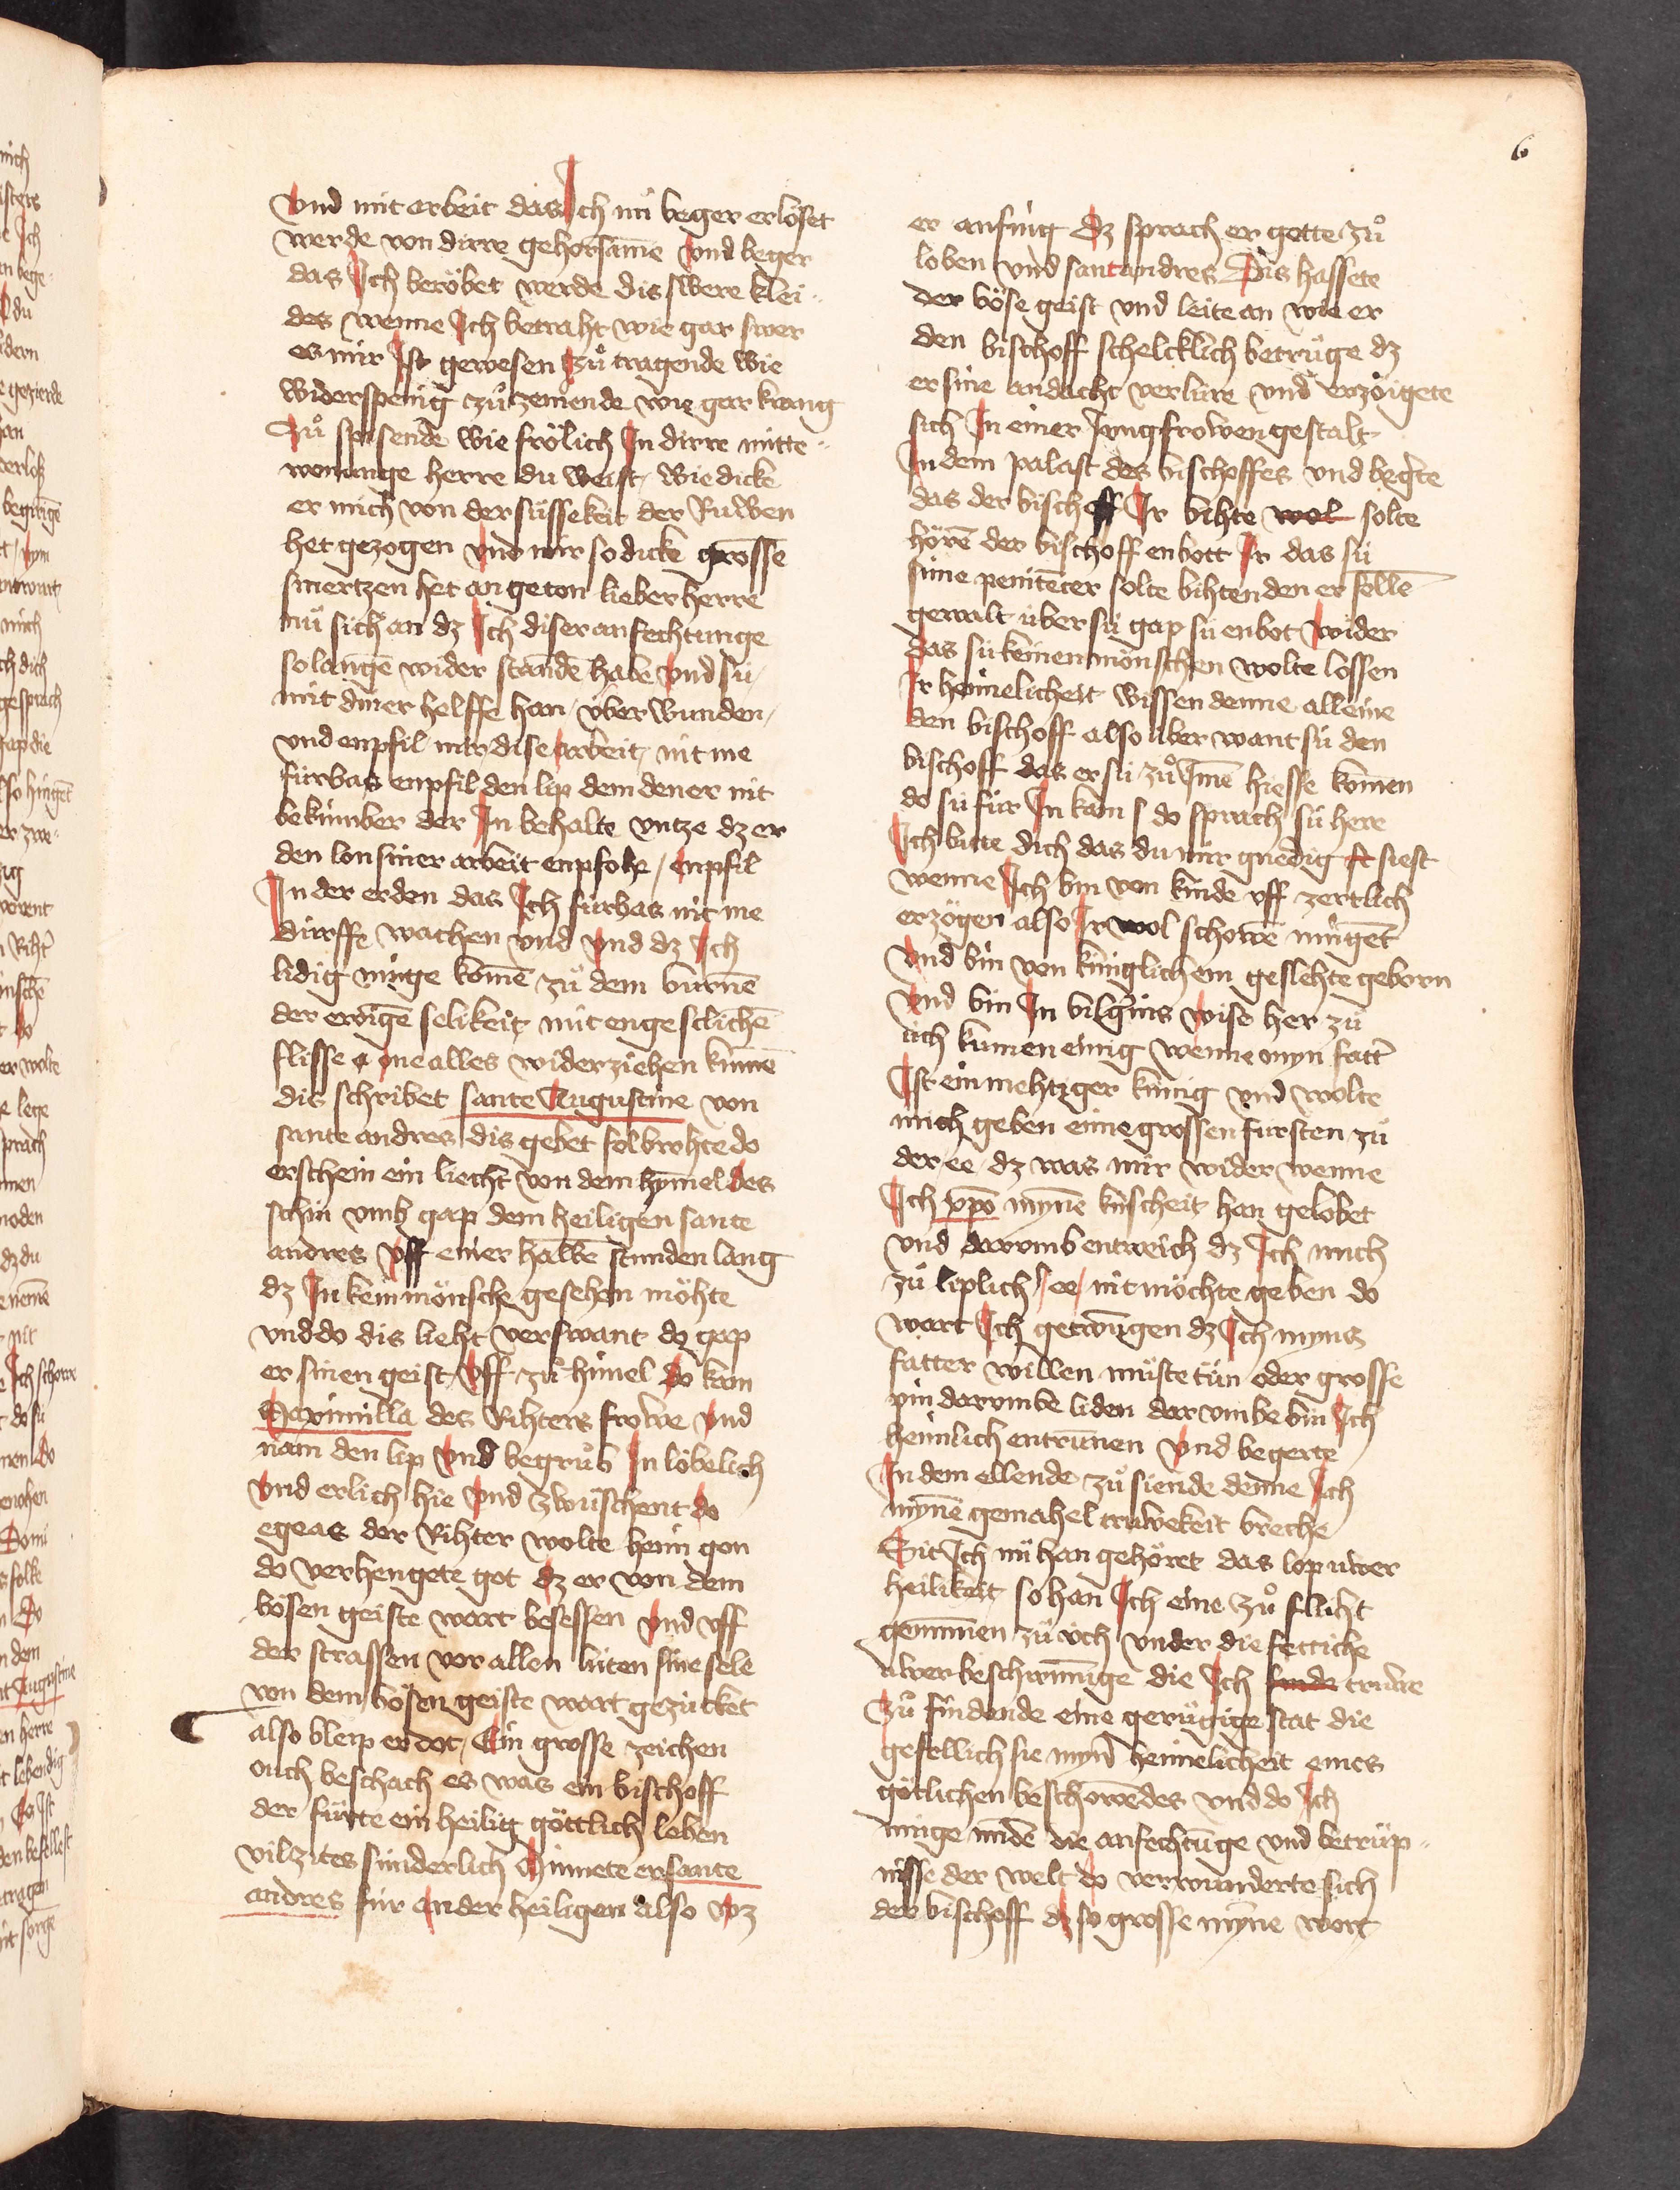 6
Vnd mit erbeit das Ich nü beger erlöset
werde von dirre gehorsame Vnd beger
das Ich beröbet werde dis swere klei¬
des wenne Ich betraht wie gar swer
es mir Ist gewesen zuͦ tragende wie
widerspenig zuͦ zemende wie gar krang
Zuͦ spisende wie frölich In dirre mitte¬
wonunge herre du weist / wie dicke
er mich von der süssekeit der Ruͦwen
het gezogen vnd mir so dicke grossē
smertzen het an geton lieber herre
nuͦ sich an dz Ich diser anfechtunge
so lange wider standē habe vnd sü /
mit diner helffe han / über wunden /
vnd enpfil mir dise arbeit / nit me
fürbas enpfil den lip dem dener nit
bekümber der In behalte vntze dz er
den lon siner arbeit enpfohe / enpfil
In der erden das Ich fürbas nit me
dürffe wachen vnd vnd dz Ich
lidig müge komē zuͦ dem burnē
der ewigē selikeit mit engeschlichē
flisse one alles widerziehen kinnē
dis schribet sante Augustine von
sante andres dis gebet folbrohte do
erschein ein liecht von dem hymel des
schin vmb gap dem heiligen sante
andres vff einer halbē stunden lang
dz In kein mönsche gesehen möhte
vnd do dis lieht verswant do gap
er sinen geist vff zuͦ himel do kam
Maximilla des Rihters frowe vnd
nam den lip vnd begruͦb In löbelich
vnd erlich hie vnd zwüschent do
egeas der Rihter wolte heim gon
do verhengete got dz er von dem
bösen geiste wart besessen vnd vff
der strassen vor allen lüten sine sele
von dem bösen geiste wart gezucket
also bleip er dot / Ein grosse zeichen
ouch beschach es was ein bischoff
der fuͦrte ein heilig göttlich leben
vil zites sünderlich Minnete er sante
andres für ander heiligen also wz
er anfing dz sprach er gotte zuͦ
loben vnd sant andres Dis hassete
der böse geist vnd leite an wie er
den bischoff schelcklich betruͦge dz
er sine andacht verlüre vnd erzöigete
sich In einer Jungfrowen gestalt
In dem palast des bischoffes vnd begerte
das der bischoff Ir bihte wol solte
hörē der bischoff enbott Ir das sü
sime penitēcer solte bihten den er follē
gewalt über sü gap sü enbot wider
das sü keinen mönschen wolte lossen
Ir heimelicheit wissen denne alleine
den bischoff also über want sü den
bischoff das er sü zuͦ Imē hiesse komen
do sü für In kam do sprach sü here
Ich bitte dich das du mir gnedig siest
wenne Ich bin von kinde vff zertlich
erzögen also Ir wol schowē mügent
vnd bin von küniglichem geslehte geborn
vnd bin In bilgerins wise her zuͦ
üch kumen einig wenne myn fatter
Ist ein mehtiger künig vnd wolte
mich geben eime grossen fürsten zuͦ
der ee dz was mir wider wenne
Ich xpō mynē küscheit han gelobet
vnd darumb entweich dz Ich mich
zuͦ liplich ee nit möchte geben do
wart Ich getwungen dz Ich myns
fatter willen müste tün oder grosse
pin darumbe liden dar vmbe bin Ich
heimlich entrunnen vnd begerte
In dem ellende zuͦ siende denne Ich
mynē gemahel truwekeit breche
Sit Ich nü han gehöret das lop uwer
heilikeit so han Ich eine zuͦ flucht
genummen zuͦ üch vnder die fettiche
uwer beschirmunge die Ich truwe
Zuͦ findende eine geruͦgige stat die
gesellich sie myner heimelicheit eines
götlichen beschowendes vnd do Ich
müge miden die anfechtunge vnd betrüp¬
nisse der welt do verwunderte sich
der bischoff dz so grosse myne wort